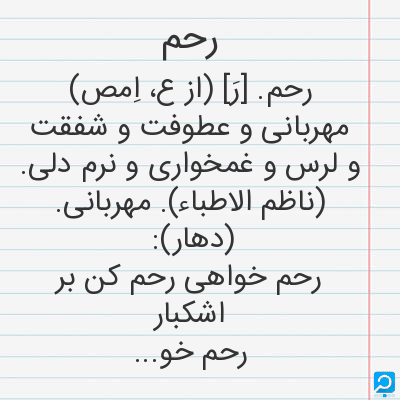 رحم
رحم. [رَ] (از ع، اِمص)
مهربانی و عطوفت و شفقت
و لرس و غمخواری و نرم دلی.
(ناظم الاطباء). مهربانی.
(دهار):
رحم خواهی رحم کن بر
اشکبار
رحم خو...